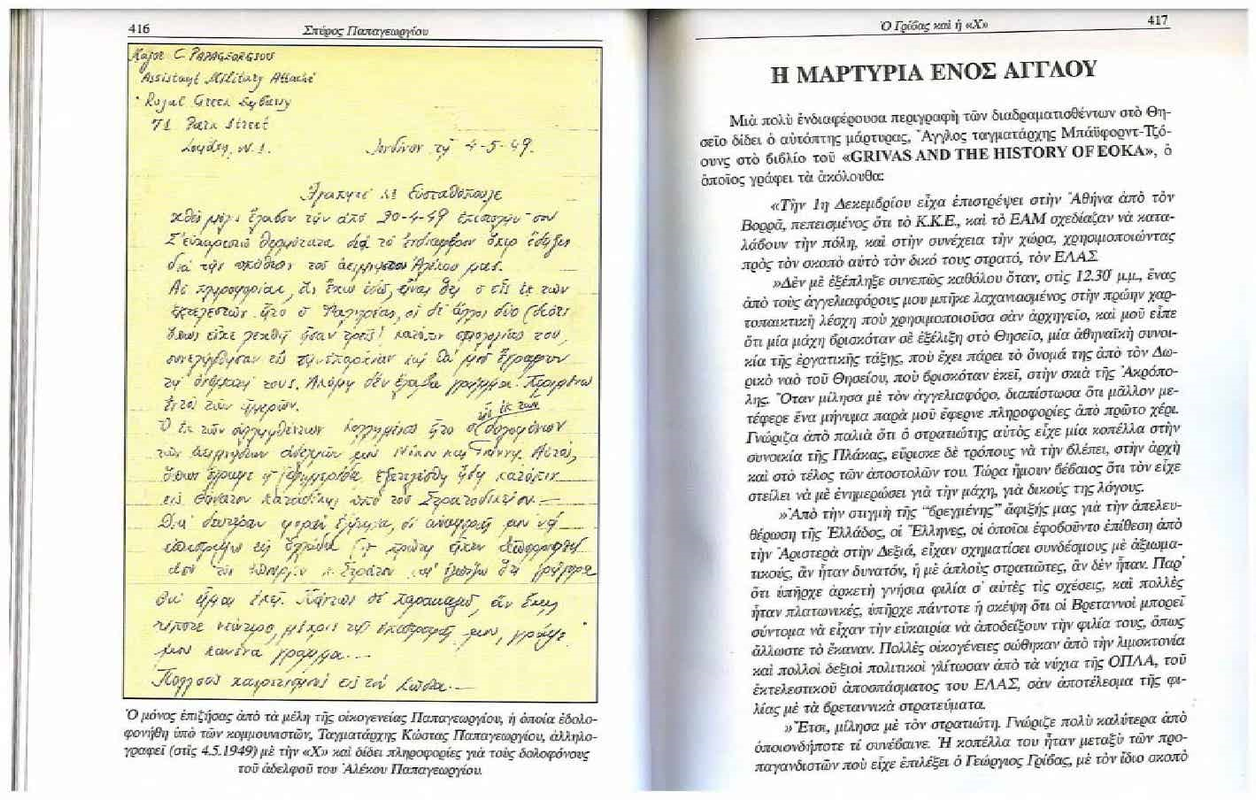 416
Σπύρος Παπαγεωργίου
Major C. PAPAGEORGIOU
Assistant Military Attaché
Royal Greek Embassy
71 Park Street
London, W.1.
Λονδίνον τῇ 4-5-49.
Ἀγαπητέ κε Εὐσταθόπουλε
χθές μόλις ἔλαβον τήν ἀπό 30-4-49 ἐπιστολήν σου
Σ' εὐχαριστῶ θερμότατα διά τό ἐνδιαφέρον ὅπερ ἔδειξες
διά τήν ὑπόθεσιν τοῦ ἀειμνήστου Ἀλέκου μας.
τῶν ἀειμνήστων ἀνεψιῶν μου Νίκου καί Γιάννη. Αὐτός,
εἰς θάνατον καταδίκης ὑπό τοῦ Στρατοδικείου.
θά εἶμαι ἐκεῖ. Πάντως σέ παρακαλῶ, ἄν ἔχεις
τίποτε νεώτερο, μέχρις τῆς ἐπιστροφῆς μου, γράψε
μου κανένα γράμμα...
Πολλούς χαιρετισμούς εἰς τόν Κώστα.
Ὁ μόνος ἐπιζήσας ἀπὸ τὰ μέλη τῆς οἰκογενείας Παπαγεωργίου, ἡ ὁποία ἐδολο-
φονήθη ὑπὸ τῶν κομμουνιστῶν, Ταγματάρχης Κώστας Παπαγεωργίου, ἀλληλο-
γραφεῖ (στὶς 4.5.1949) μὲ τὴν «Χ» καὶ δίδει πληροφορίες γιὰ τοὺς δολοφόνους
τοῦ ἀδελφοῦ του Ἀλέκου Παπαγεωργίου.
Ὁ Γρίβας καὶ ἡ «Χ»
417
Η ΜΑΡΤΥΡΙΑ ΕΝΟΣ ΑΓΓΛΟΥ
Μιὰ πολὺ ἐνδιαφέρουσα περιγραφὴ τῶν διαδραματισθέντων στὸ Θη-
σεῖο δίδει ὁ αὐτόπτης μάρτυρας, Ἄγγλος ταγματάρχης Μπάϋφορντ-Τζό-
ουνς στὸ βιβλίο τοῦ «GRIVAS AND THE HISTORY OF EOKA», ὁ
ὁποῖος γράφει τὰ ἀκόλουθα:
«Τὴν 1η Δεκεμβρίου εἶχα ἐπιστρέψει στὴν Ἀθήνα ἀπὸ τὸν
Βορρᾶ, πεπεισμένος ὅτι τὸ Κ.Κ.Ε., καὶ τὸ ΕΑΜ σχεδίαζαν νὰ κατα-
λάβουν τὴν πόλη, καὶ στὴν συνέχεια τὴν χώρα, χρησιμοποιώντας
πρὸς τὸν σκοπὸ αὐτὸ τὸν δικό τους στρατό, τὸν ΕΛΑΣ
»Δὲν μὲ ἐξέπληξε συνεπῶς καθόλου ὅταν, στὶς 12.30΄ μ.μ., ἕνας
ἀπὸ τοὺς ἀγγελιαφόρους μου μπῆκε λαχανιασμένος στὴν πρώην χαρ-
τοπαικτικὴ λέσχη ποὺ χρησιμοποιοῦσα σὰν ἀρχηγεῖο, καὶ μοῦ εἶπε
ὅτι μία μάχη βρισκόταν σὲ ἐξέλιξη στὸ Θησεῖο, μία ἀθηναϊκὴ συνοι-
κία τῆς ἐργατικῆς τάξης, ποὺ ἔχει πάρει τὸ ὄνομά της ἀπὸ τὸν Δω-
ρικὸ ναὸ τοῦ Θησείου, ποὺ βρισκόταν ἐκεῖ, στὴν σκιὰ τῆς Ἀκρόπο-
λης. Ὅταν μίλησα μὲ τὸν ἀγγελιαφόρο, διαπίστωσα ὅτι μᾶλλον με-
τέφερε ἕνα μήνυμα παρὰ μοῦ ἔφερνε πληροφορίες ἀπὸ πρῶτο χέρι.
Γνώριζα ἀπὸ παλιὰ ὅτι ὁ στρατιώτης αὐτὸς εἶχε μία κοπέλλα στὴν
συνοικία τῆς Πλάκας, εὕρισκε δὲ τρόπους νὰ τὴν βλέπει, στὴν ἀρχὴ
καὶ στὸ τέλος τῶν ἀποστολῶν του. Τώρα ἤμουν βέβαιος ὅτι τὸν εἶχε
στείλει νὰ μὲ ἐνημερώσει γιὰ τὴν μάχη, γιὰ δικούς της λόγους.
»Ἀπὸ τὴν στιγμὴ τῆς "βρεγμένης" ἄφιξής μας γιὰ τὴν ἀπελευ-
θέρωση τῆς Ἑλλάδος, οἱ Ἕλληνες, οἱ ὁποῖοι ἐφοβοῦντο ἐπίθεση ἀπὸ
τὴν Ἀριστερὰ στὴν Δεξιά, εἶχαν σχηματίσει συνδέσμους μὲ ἀξιωμα-
τικούς, ἂν ἦταν δυνατόν, ἢ μὲ ἁπλοὺς στρατιῶτες, ἂν δὲν ἦταν. Παρ'
ὅτι ὑπῆρχε ἀρκετὴ γνήσια φιλία σ' αὐτὲς τὶς σχέσεις, καὶ πολλὲς
ἦταν πλατωνικές, ὑπῆρχε πάντοτε ἡ σκέψη ὅτι οἱ Βρεταννοὶ μπορεῖ
σύντομα νὰ εἶχαν τὴν εὐκαιρία νὰ ἀποδείξουν τὴν φιλία τους, ὅπως
ἄλλωστε τὸ ἔκαναν. Πολλὲς οἰκογένειες σώθηκαν ἀπὸ τὴν λιμοκτονία
καὶ πολλοὶ δεξιοὶ πολιτικοὶ γλίτωσαν ἀπὸ τὰ νύχια τῆς ΟΠΛΑ, τοῦ
ἐκτελεστικοῦ ἀποσπάσματος του ΕΛΑΣ, σὰν ἀποτέλεσμα τῆς φι-
λίας μὲ τὰ βρεταννικὰ στρατεύματα.
»Ἔτσι, μίλησα μὲ τὸν στρατιώτη. Γνώριζε πολὺ καλύτερα ἀπὸ
ὁποιονδήποτε τί συνέβαινε. Ἡ κοπέλλα του ἦταν μεταξὺ τῶν προ-
παγανδιστῶν ποὺ εἶχε ἐπιλέξει ὁ Γεώργιος Γρίβας, μὲ τὸν ἴδιο σκοπὸ